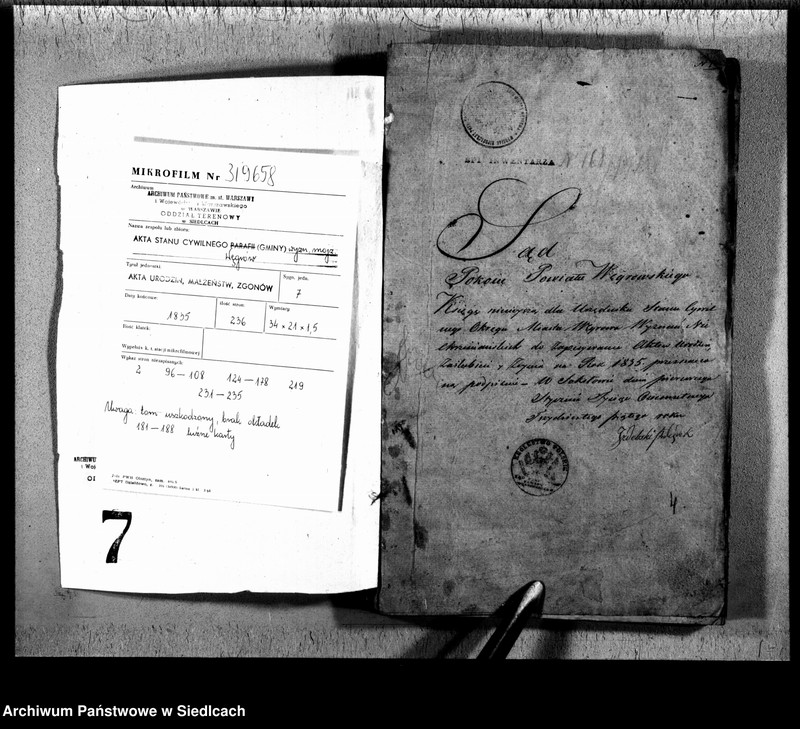 MIKROFILM Nr 319658
Archiwum
ARCHIWUM PAŃSTWOWE m. st. WARSZAWY
i Województwa Warszawskiego
w WARSZAWIE
ODDZIAŁ TERENOWY
w SIEDLCACH
Nazwa zespołu lub zbioru:
AKTA STANU CYWILNEGO PARAFII (GMINY) wyzn. mojż.
Węgrów
Tytuł jednostki:
AKTA URODZIN, MAŁŻEŃSTW, ZGONÓW
Sygn. jedn.
7
Daty końcowe:
1835
Ilość stron:
236
Wymiary:
34 × 21 × 1,5
Ilość klatek:
Wypełnia k. t. stacji mikrofilmowej
Wykaz stron niezapisanych:
2 96–108 124–178 219
231–235
Uwaga: tom uszkodzony, brak okładek
181–188 luźne karty
7
SPT INWENTARZA N
Sąd
Pokoju Powiatu Węgrowskiego
Księgę niniejszą dla Urzędnika Stanu Cywil
nego Okręgu Miasta Węgrowa Wyznań Nie
Chrześciańskich do Zapisywania Aktów Urodzin,
Zaślubin y Zejścia na Rok 1835 przeznacza
na podpisuie W Sokołowie dnia pierwszego
Stycznia Tysiąc Ośmsetnego
Trzydziestego piątego roku
4
Archiwum Państwowe w Siedlcach